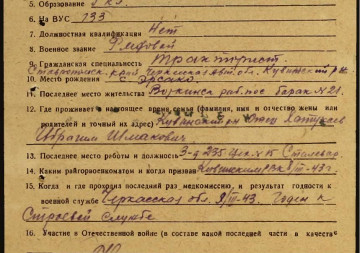 5. Образование 2 кл.
6. На ВУС 133
7. Должностная квалификация Нет
8. Военное звание Рядовой
9. Гражданская специальность Тракторист
Ставропольск. край, Черкесская авт. обл. Кувинский р-н
10. Место рождения с. Эрсакон
11. Последнее место жительства раб. пос. барак № 21.
12. Где проживает в настоящее время семья (фамилия, имя и отчество жены или
родителей и точный их адрес)
Ибрагим Шмакович
13. Последнее место работы и должность З-д 235 цех № 15 Сталевар
14. Каким райгорвоенкоматом и когда призван 43 г.
15. Когда и где проходил последний раз медкомиссию, и результат годности к
военной службе Черкесская обл. 9/III-43. Годен к
строевой службе
16. Участие в Отечественной войне (в составе какой последней части в качестве